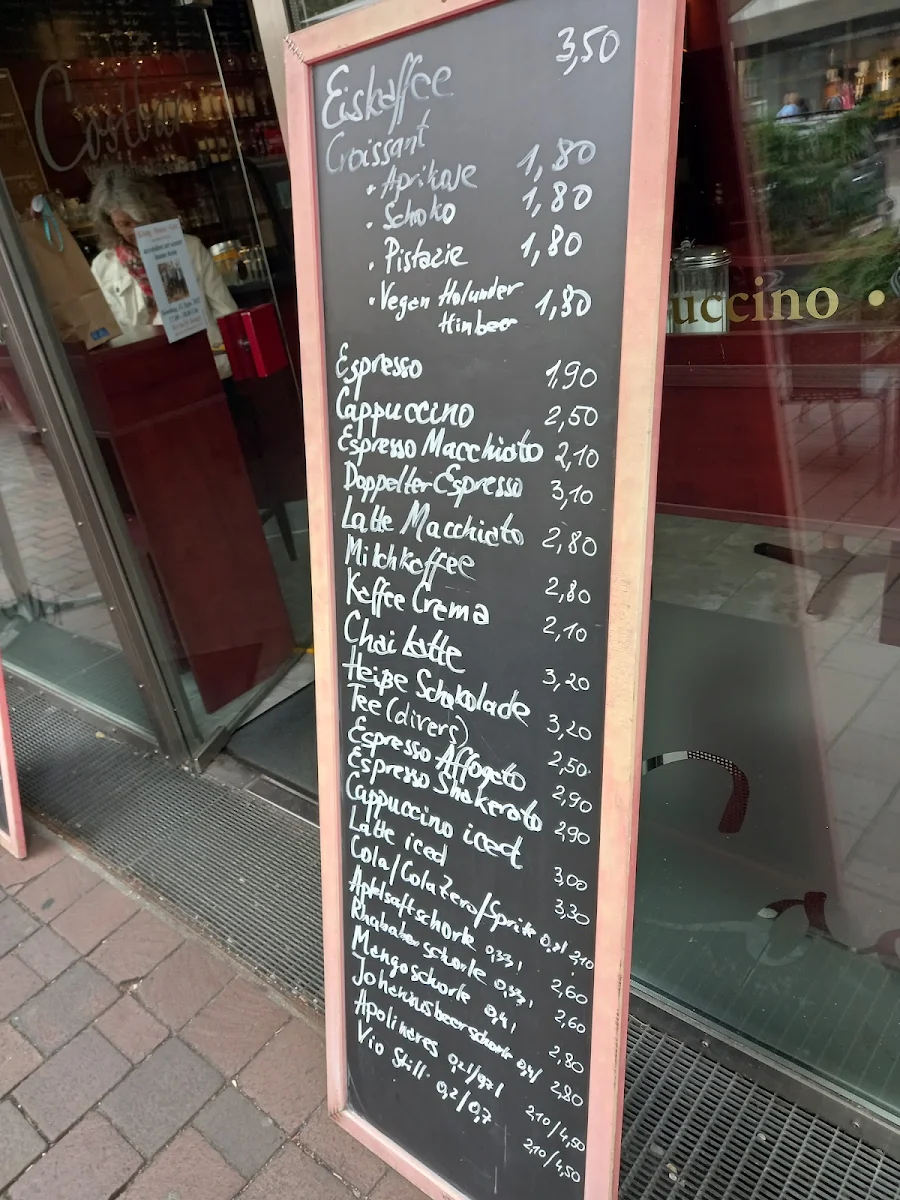 Eiskaffee 3,50
Croissant
• Aprikose 1,80
• Schoko 1,80
• Pistazie 1,80
• Vegan Holunder 1,80
Himbeer
Espresso 1,90
Cappuccino 2,50
Espresso Macchiato 2,10
Doppelter Espresso 3,10
Latte Macchiato 2,80
Milchkaffee 2,80
Kaffee Crema 2,10
Chai Latte 3,20
Heiße Schokolade 3,20
Tee (divers) 2,50
Espresso Affogato 2,90
Espresso Shakerato 2,90
Cappuccino iced 3,00
Latte iced 3,30
Cola/Cola Zero/Sprite 0,2l 2,10
Apfelsaftschorle 0,33l 2,60
Rhababerschorle 0,33l 2,60
Mangoschorle 0,4l 2,80
Johannisbeerschorle 0,4l 2,80
Apolinares 0,2l/0,7l 2,10/4,50
Vio Still 0,2/0,7 2,10/4,50
uccino •